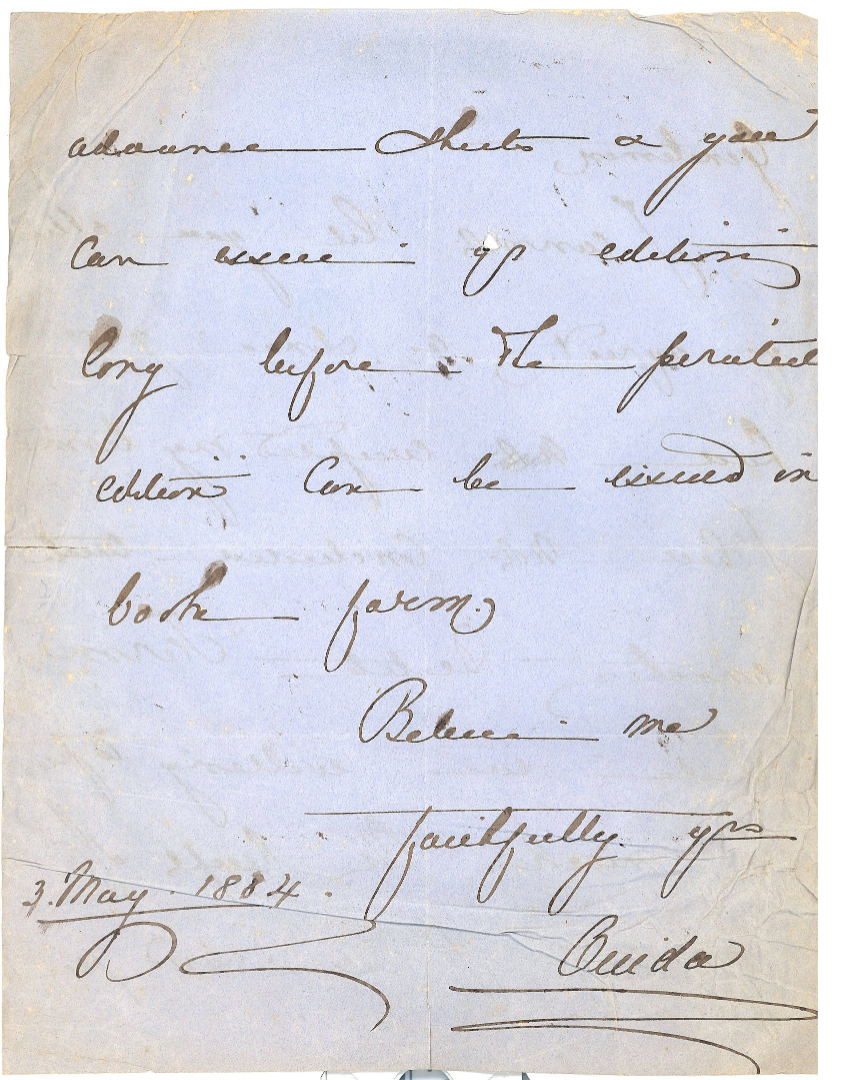 advance sheets & you
can issue yr edition
long before the pirated
edition can be issued in
book form.
Believe me
faithfully yrs
3. May. 1884.
Ouida